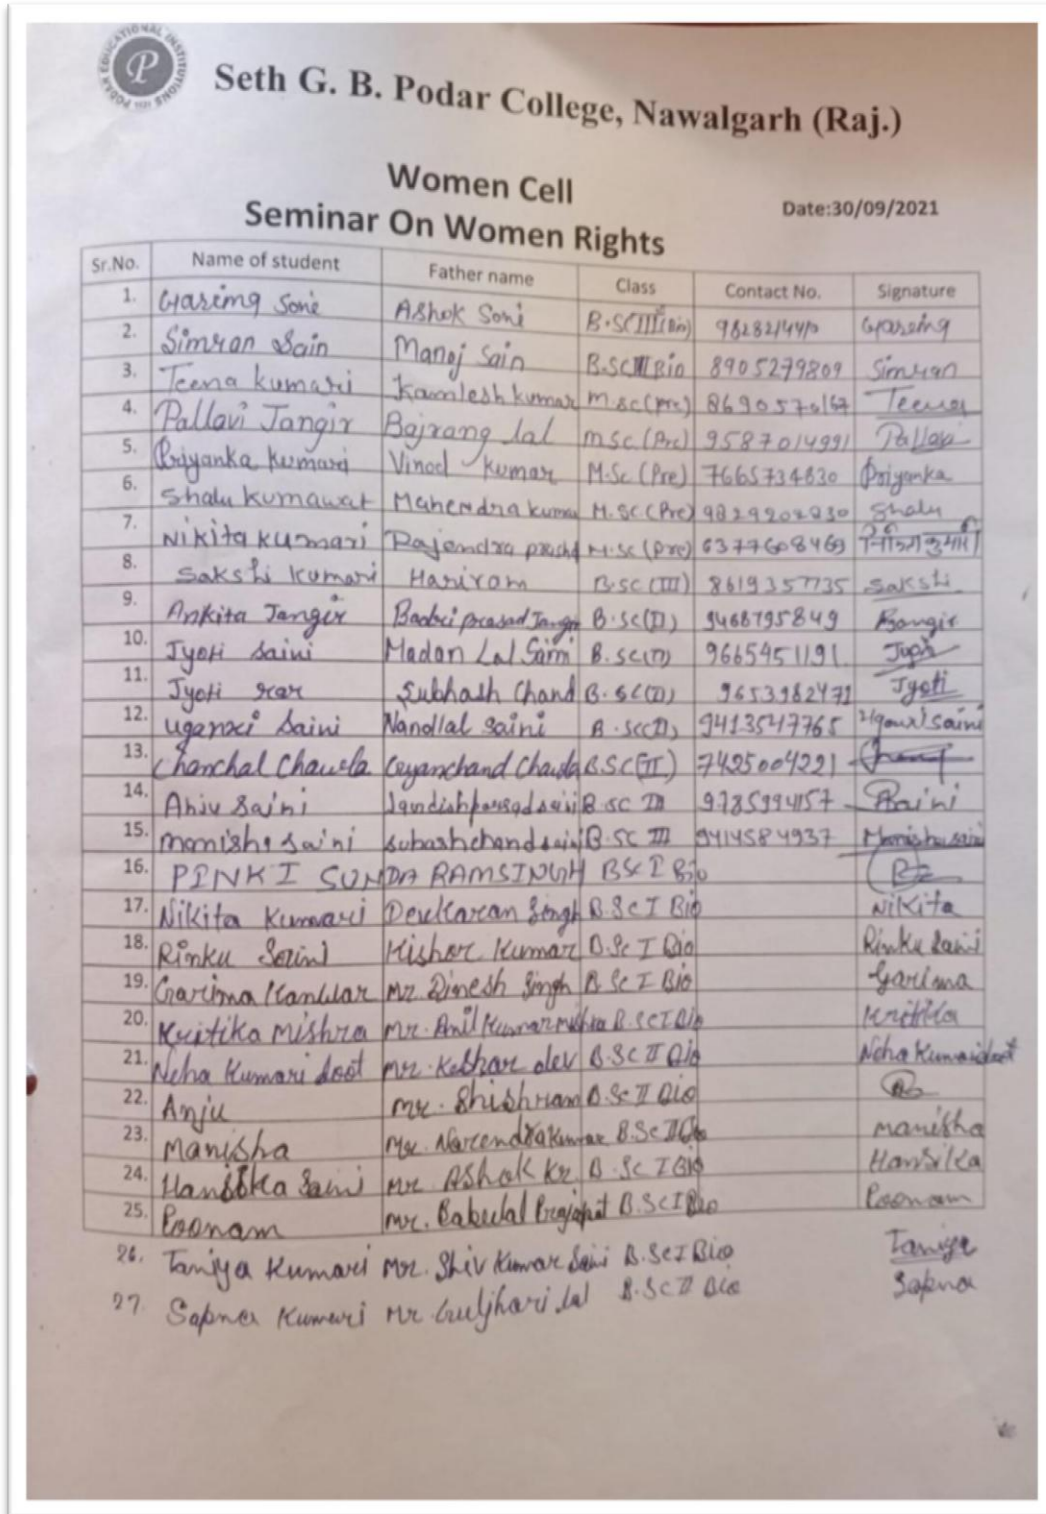 PODAR EDUCATIONAL INSTITUTIONS
P
Seth G. B. Podar College, Nawalgarh (Raj.)
Women Cell
Date:30/09/2021
Seminar On Women Rights
Sr.No. Name of student Father name Class Contact No. Signature
1. Ashok Soni B.SC III (Bio)
2. Simran Sain Manoj Sain B.SC III Bio 8905279809 Simran
3. Teena kumari Kamlesh kumar M.sc(pre) Teena
4. Pallavi Jangir Bajrang lal MSc.(Pre) 9587014991 Pallavi
5. Priyanka Kumari Vinod kumar M.Sc (Pre) 7665734830 Priyanka
6. Shalu kumawat Mahendra kuma M.SC (Pre) Shalu
7. Nikita kumari Rajendra M.sc (pre) 6377608469
8. Sakshi kumari Hariram B.sc (III) Sakshi
9. Ankita Jangir Badri prasad Jangir B.sc(II) 9468795849
10. Jyoti Saini Madan Lal Saini B.sc(II) 9665451191
11. Jyoti Subhash Chand B.sc(II) 9653982471 Jyoti
12. Saini Nandlal Saini B.sc(II) 9413547765 saini
13. Chanchal Chawla Gyanchand Chawla B.SC(II) 7425004221
14. Saini B.sc III
15. Manisha Saini Subashchand saini B.SC III 9414584937 Manisha saini
16. PINKI SUNDA RAMSINGH BSc I Bio
17. Nikita Kumari Devkaran Singh B.Sc I Bio Nikita
18. Rinku Saini Kishor Kumar B.Sc I Bio Rinku Saini
19. Garima Kanwar Mr. Dinesh Singh B Sc I Bio Garima
20. Kritika Mishra Mr. Anil Kumar Mishra B.Sc I Bio Kritika
21. Neha Kumari doot Mr. dev B.Sc II Bio Neha Kumari doot
22. Anju Mr. Shishram B.Sc II Bio
23. Manisha Mr. Narendra kumar B.Sc II Bio Manisha
24. Hansika Saini Mr. Ashok Kr. B.Sc I Bio Hansika
25. Poonam Mr. Babulal Prajapat B.Sc I Bio Poonam
26. Taniya Kumari Mr. Shiv Kumar Saini B.Sc I Bio Taniya
27. Sapna Kumari Mr. Guljhari lal B.Sc II Bio Sapna